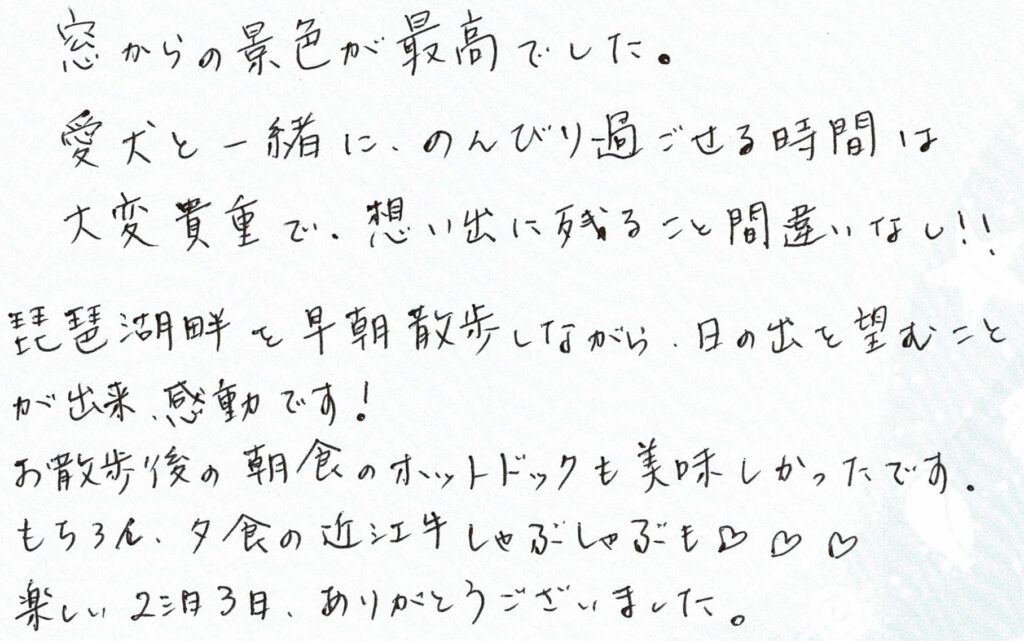 窓からの景色が最高でした。
愛犬と一緒に、のんびり過ごせる時間は
大変貴重で、想い出に残ること間違いなし!!
琵琶湖畔を早朝散歩しながら、日の出を望むこと
が出来、感動です!
お散歩後の朝食のホットドックも美味しかったです。
もちろん、夕食の近江牛しゃぶしゃぶも♡♡♡
楽しい2泊3日、ありがとうございました。